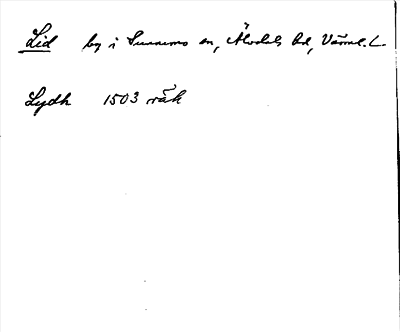 Lid by i Sunnemo sn, Älvdals hd, Värml. L.
Lydh 1503 räk